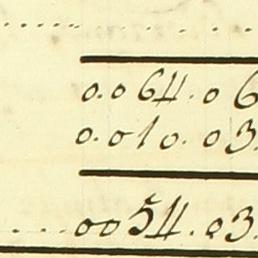 0.064.06
0.010.03
....0054.03